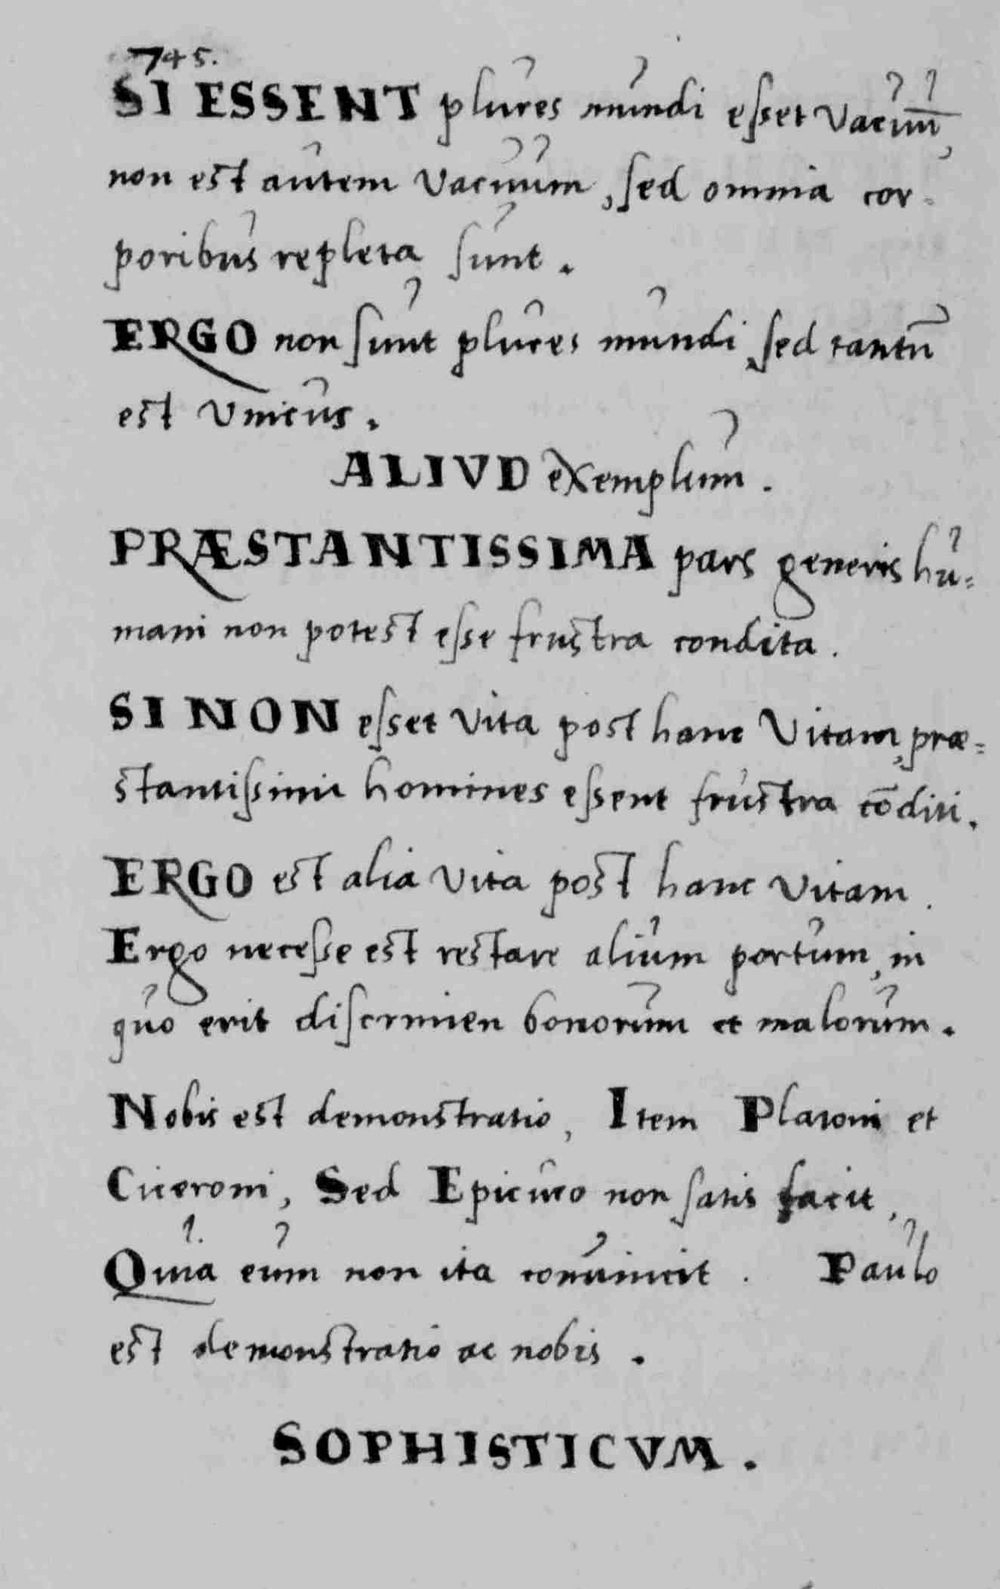 745.
SI ESSENT plures mundi esset vacuū,
non est autem vacuum, sed omnia cor-
poribus repleta sunt.
ERGO non sunt plures mundi, sed tantū
est unicus.
ALIVD exemplum.
PRÆSTANTISSIMA pars generis hu=
mani non potest esse frustra condita.
SI NON esset vita post hanc vitam, præ=
stantissimi homines essent frustra cōditi.
ERGO est alia vita post hanc vitam.
Ergo necesse est restare alium portum, in
quo erit discrimen bonorum et malorum.
Nobis est demonstratio, Item Platoni et
Ciceroni, Sed Epicuro non satis facit,
Quia eum non ita conuincit. Paulo
est demonstratio ac nobis.
SOPHISTICVM.